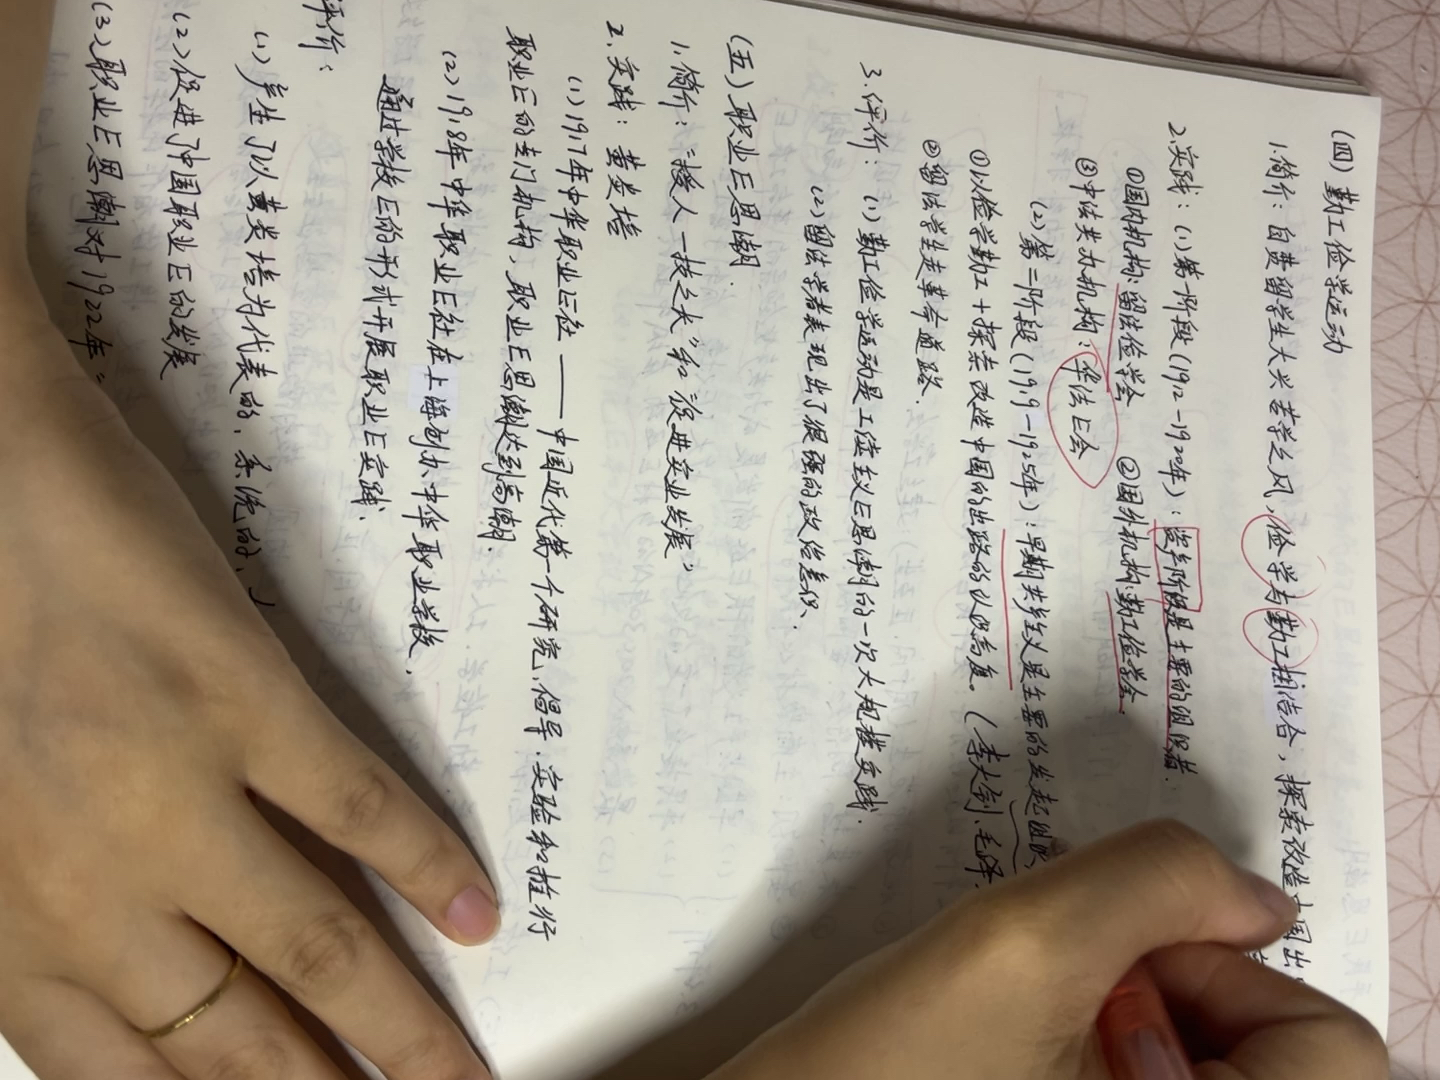 (四) 勤工俭学运动
1.简介: 自费留学生大兴苦学之风, 俭学与勤工相结合, 探索改造中国出
2.实践: (1) 第一阶段 (1912-1920年): 资产阶级是主要的组织者.
①国内机构: 留法俭学会 ②国外机构: 勤工俭学会.
③中法共办机构: 华法E会
(2) 第二阶段 (1919-1925年): 早期共产主义是主要的发起组织
①以俭学勤工+探索改造中国的出路的认识高度。(李大钊、毛泽
②留法学生走革命道路.
3.评价: (1) 勤工俭学运动是工读主义E思潮的一次大规模实践.
(2) 留法学者表现出了很强的政治意识.
(五) 职业E思潮.
1.简介: "授人一技之长"和"促进实业发展"
2.实践: 黄炎培
(1) 1917年中华职业E社 —— 中国近代第一个研究、倡导、实验和推行
职业E的专门机构, 职业E思潮达到高潮.
(2) 1918年中华职业E社在上海创办中华职业学校,
通过学校E的形式开展职业E实践.
评价:
(1) 产生了以黄炎培为代表的、系统的、
(2) 促进了中国职业E的发展
(3) 职业E思潮对1922年